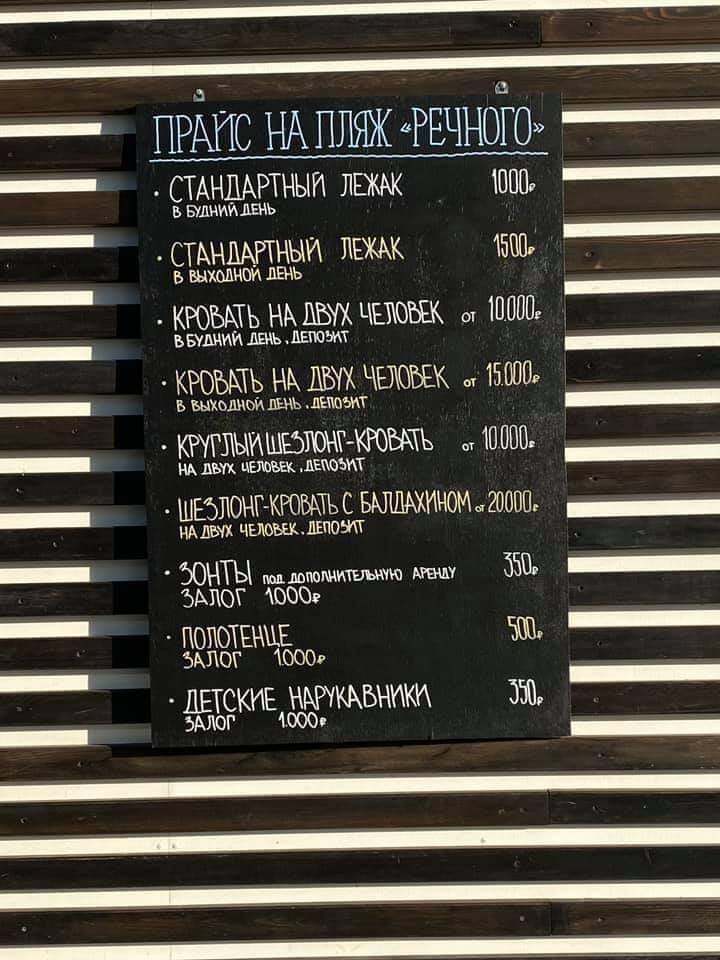 ПРАЙС НА ПЛЯЖ «РЕЧНОГО»
• СТАНДАРТНЫЙ ЛЕЖАК 1000₽
В БУДНИЙ ДЕНЬ
• СТАНДАРТНЫЙ ЛЕЖАК 1500₽
В ВЫХОДНОЙ ДЕНЬ
• КРОВАТЬ НА ДВУХ ЧЕЛОВЕК ОТ 10.000₽
В БУДНИЙ ДЕНЬ, ДЕПОЗИТ
• КРОВАТЬ НА ДВУХ ЧЕЛОВЕК ОТ 15.000₽
В ВЫХОДНОЙ ДЕНЬ, ДЕПОЗИТ
• КРУГЛЫЙ ШЕЗЛОНГ-КРОВАТЬ ОТ 10.000₽
НА ДВУХ ЧЕЛОВЕК, ДЕПОЗИТ
• ШЕЗЛОНГ-КРОВАТЬ С БАЛДАХИНОМ ОТ 20.000₽
НА ДВУХ ЧЕЛОВЕК, ДЕПОЗИТ
• ЗОНТЫ ПОД ДОПОЛНИТЕЛЬНУЮ АРЕНДУ 350₽
ЗАЛОГ 1000₽
• ПОЛОТЕНЦЕ 500₽
ЗАЛОГ 1.000₽
• ДЕТСКИЕ НАРУКАВНИКИ 350₽
ЗАЛОГ 1.000₽